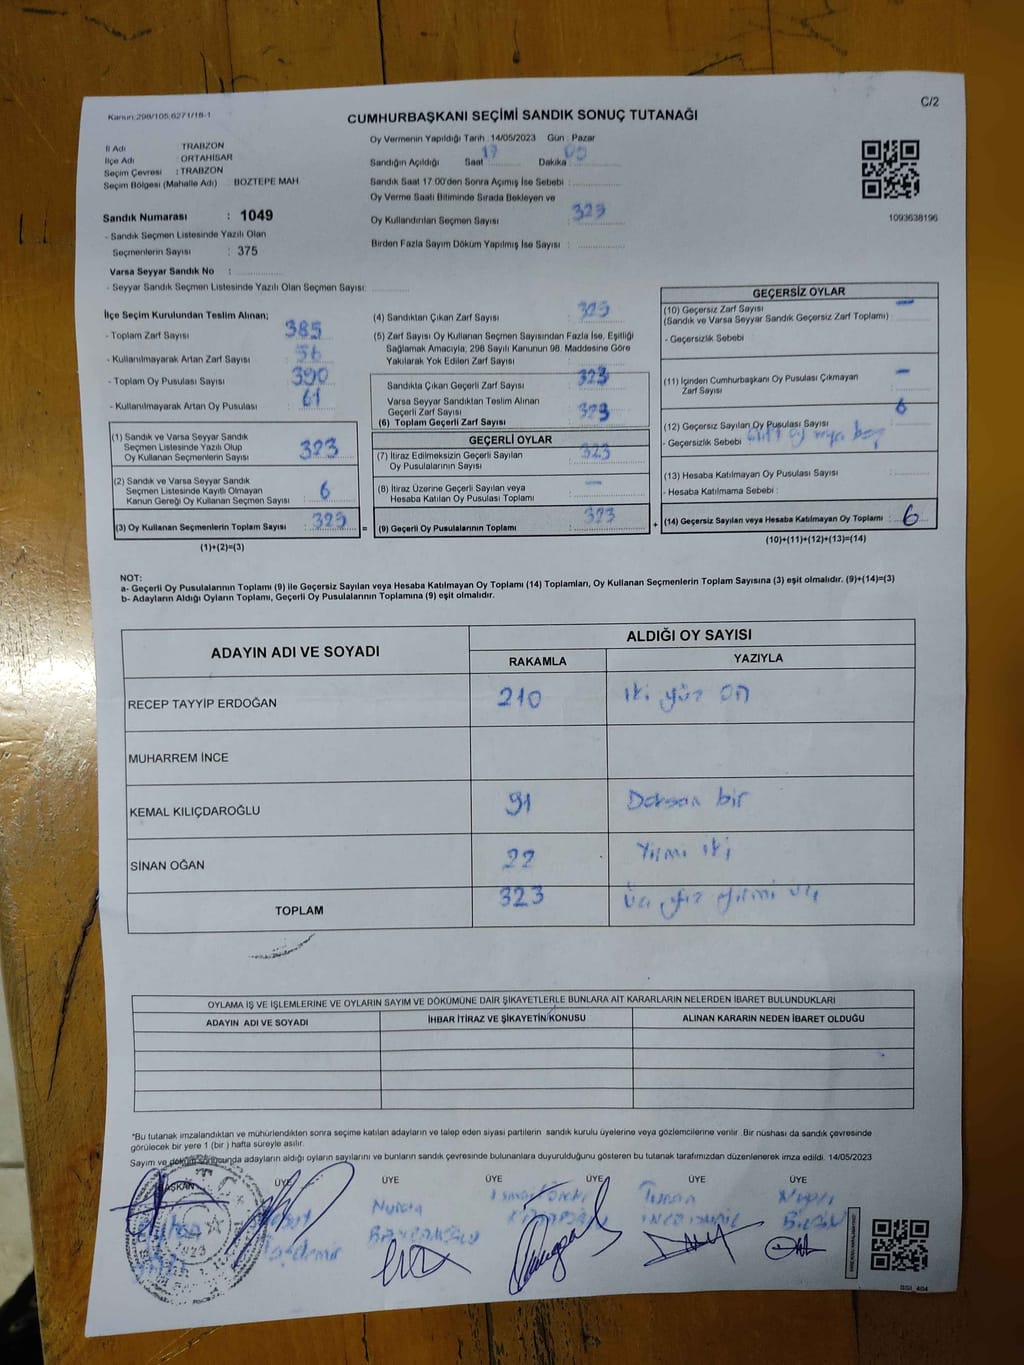 C/2
Kanun:298/105,6271/18-1
CUMHURBAŞKANI SEÇİMİ SANDIK SONUÇ TUTANAĞI
İl Adı : TRABZON
İlçe Adı : ORTAHİSAR
Seçim Çevresi : TRABZON
Seçim Bölgesi (Mahalle Adı) : BOZTEPE MAH
Sandık Numarası : 1049
- Sandık Seçmen Listesinde Yazılı Olan
Seçmenlerin Sayısı : 375
Varsa Seyyar Sandık No :
- Seyyar Sandık Seçmen Listesinde Yazılı Olan Seçmen Sayısı:
Oy Vermenin Yapıldığı Tarih : 14/05/2023 Gün : Pazar
Sandığın Açıldığı Saat 17 Dakika 05
Sandık Saat 17.00'den Sonra Açımış İse Sebebi :
Oy Verme Saati Bitiminde Sırada Bekleyen ve
Oy Kullandırılan Seçmen Sayısı : 323
Birden Fazla Sayım Döküm Yapılmış İse Sayısı :
1093638196
İlçe Seçim Kurulundan Teslim Alınan;
- Toplam Zarf Sayısı : 385
- Kullanılmayarak Artan Zarf Sayısı : 56
- Toplam Oy Pusulası Sayısı : 390
- Kullanılmayarak Artan Oy Pusulası : 61
(1) Sandık ve Varsa Seyyar Sandık
Seçmen Listesinde Yazılı Olup
Oy Kullanan Seçmenlerin Sayısı : 323
(2) Sandık ve Varsa Seyyar Sandık
Seçmen Listesinde Kayıtlı Olmayan
Kanun Gereği Oy Kullanan Seçmen Sayısı : 6
(3) Oy Kullanan Seçmenlerin Toplam Sayısı :
(1)+(2)=(3)
(4) Sandıktan Çıkan Zarf Sayısı :
(5) Zarf Sayısı Oy Kullanan Seçmen Sayısından Fazla İse, Eşitliği
Sağlamak Amacıyla, 298 Sayılı Kanunun 98. Maddesine Göre
Yakılarak Yok Edilen Zarf Sayısı :
Sandıkta Çıkan Geçerli Zarf Sayısı : 323
Varsa Seyyar Sandıktan Teslim Alınan
Geçerli Zarf Sayısı :
(6) Toplam Geçerli Zarf Sayısı : 323
GEÇERLİ OYLAR
(7) İtiraz Edilmeksizin Geçerli Sayılan
Oy Pusulalarının Sayısı : 323
(8) İtiraz Üzerine Geçerli Sayılan veya
Hesaba Katılan Oy Pusulası Toplamı : —
= (9) Geçerli Oy Pusulalarının Toplamı : 323
GEÇERSİZ OYLAR
(10) Geçersiz Zarf Sayısı : —
(Sandık ve Varsa Seyyar Sandık Geçersiz Zarf Toplamı)
- Geçersizlik Sebebi
(11) İçinden Cumhurbaşkanı Oy Pusulası Çıkmayan : —
Zarf Sayısı
(12) Geçersiz Sayılan Oy Pusulası Sayısı : 6
- Geçersizlik Sebebi
(13) Hesaba Katılmayan Oy Pusulası Sayısı :
- Hesaba Katılmama Sebebi :
+ (14) Geçersiz Sayılan veya Hesaba Katılmayan Oy Toplamı : 6
(10)+(11)+(12)+(13)=(14)
NOT:
a- Geçerli Oy Pusulalarının Toplamı (9) ile Geçersiz Sayılan veya Hesaba Katılmayan Oy Toplamı (14) Toplamları, Oy Kullanan Seçmenlerin Toplam Sayısına (3) eşit olmalıdır. (9)+(14)=(3)
b- Adayların Aldığı Oyların Toplamı, Geçerli Oy Pusulalarının Toplamına (9) eşit olmalıdır.
ADAYIN ADI VE SOYADI ALDIĞI OY SAYISI
RAKAMLA YAZIYLA
RECEP TAYYİP ERDOĞAN 210 iki yüz on
MUHARREM İNCE
KEMAL KILIÇDAROĞLU 91 Doksan bir
SİNAN OĞAN 22 Yirmi iki
TOPLAM 323 üç yüz yirmi üç
OYLAMA İŞ VE İŞLEMLERİNE VE OYLARIN SAYIM VE DÖKÜMÜNE DAİR ŞİKAYETLERLE BUNLARA AİT KARARLARIN NELERDEN İBARET BULUNDUKLARI
ADAYIN ADI VE SOYADI İHBAR İTİRAZ VE ŞİKAYETİN KONUSU ALINAN KARARIN NEDEN İBARET OLDUĞU
*Bu tutanak imzalandıktan ve mühürlendikten sonra seçime katılan adayların ve talep eden siyasi partilerin sandık kurulu üyelerine veya gözlemcilerine verilir. Bir nüshası da sandık çevresinde
görülecek bir yere 1 (bir ) hafta süreyle asılır.
Sayım ve döküm sonucunda adayların aldığı oyların sayılarını ve bunların sandık çevresinde bulunanlara duyurulduğunu gösteren bu tutanak tarafımızdan düzenlenerek imza edildi. 14/05/2023
BAŞKAN ÜYE ÜYE ÜYE ÜYE ÜYE ÜYE